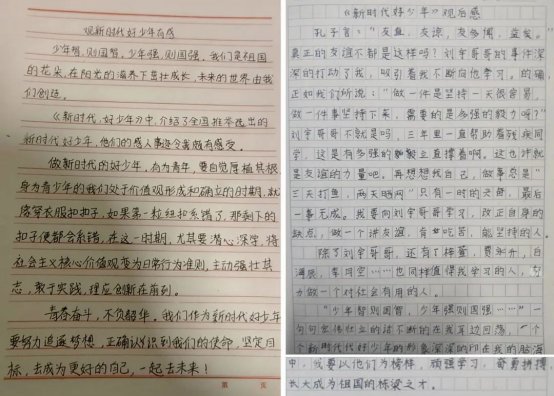 观新时代好少年有感
少年智,则国智,少年强,则国强。我们是祖国
的花朵,在阳光的滋养下茁壮成长,未来的世界由我
们创造。
《新时代,好少年》中,介绍了全国推举选出的
新时代好少年,他们的感人事迹令我颇有感受。
做新时代的好少年,有为青年,要自觉厚植其根,
身为青少年的我们处于价值观形成和确立的时期,就
像穿衣服扣扣子,如果第一粒纽扣系错了,那剩下的
扣子便都会系错,在这一时期,尤其要潜心深学,将
社会主义核心价值观变为日常行为准则,主动强壮其
志,敢于实践,理应创新在前列。
青春奋斗,不负韶华。我们作为新时代好少年
要努力追逐梦想,正确认识到我们的使命,坚定目
标,去成为更好的自己,一起去未来!
第 页
《新时代好少年》观后感
孔子言:“友直,友谅,友多闻,益矣。”
真正的友谊不都是这样吗?刘宇哥哥的事件深
深的打动了我,吸引着我不断向他学习。的确
正如我们所说:“做一件是坚持一天很容易,
做一件事坚持下来,需要的是多强的毅力呀?”
刘宇哥哥不就是吗,三年里一直帮助着残疾同
学,这是有多强的毅力直撑着啊。这也许就
是友谊的力量吧。再想想我自己,做事总是“
三天打鱼,两天晒网”只有一时的兴奋,最后
一事无成。我要向刘宇哥哥学习,改正自身的
缺点,做一个讲友谊,有 吃苦,能坚持的人。
除了刘宇哥哥,还有了 萱,贾朔升,白
海辰,李同空……也同样值得我学习的人,努
力做一个对社会有用的人。
“少年智则国智,少年强则国强……”一
句句宏伟创立的话不断的在我耳边回荡,一个
个新时代好少年的形象深深的印在我的脑海
中。我要以他们为榜样,顽强学习,奋勇拼搏,
长大成为祖国的栋梁之才。